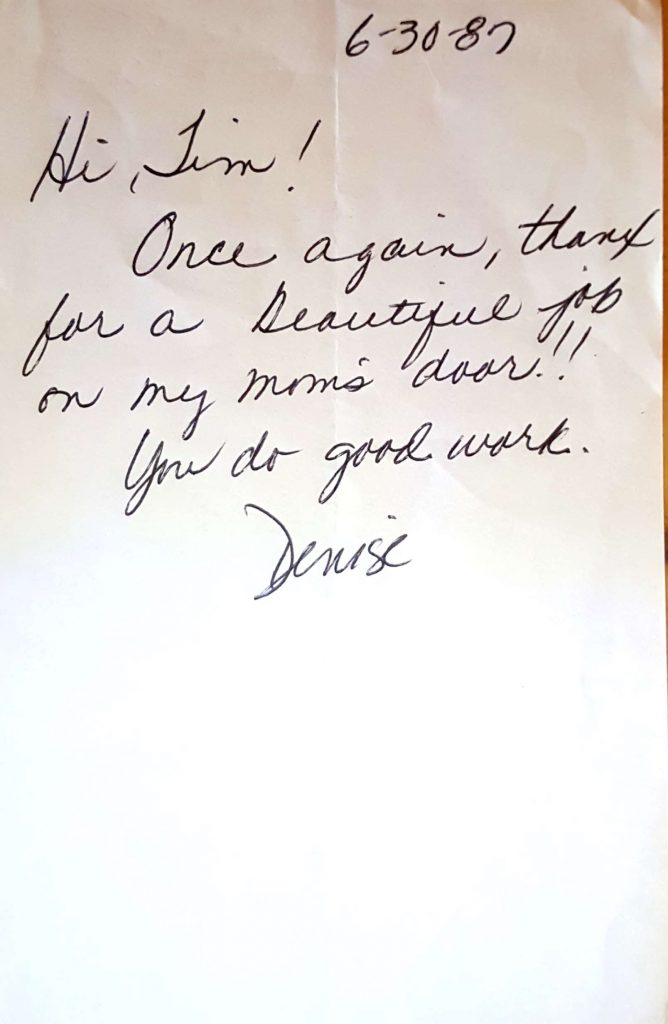 6-30-87
Hi, Tim!
Once again, thanx
for a beautiful job
on my mom's door!!
You do good work.
Denise